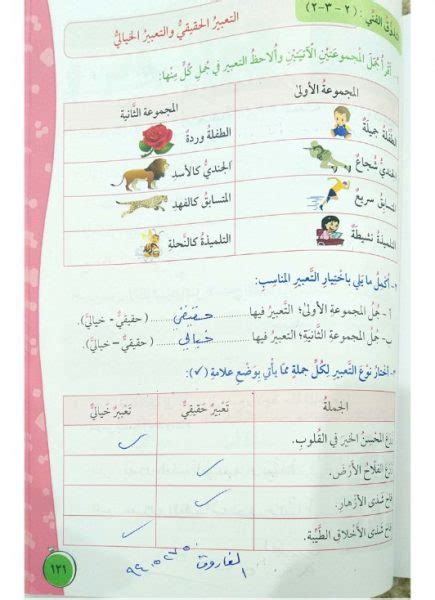 التذوق الفني: (٢-٣-٢)
التعبير الحقيقيُّ والتعبير الخياليُّ
١- أقرأ جُمَلَ المجموعَتَيْنِ الْآتِيَتَيْنِ وأُلاحظُ التعبير في جُملِ كُلٍّ مِنْها:
المجموعَةُ الأولى
المجموعة الثّانية
الطفلةُ جَميلَةٌ
الطفلةُ وردةٌ
الجنديُّ شُجاعٌ
الجنديُّ كالأسدِ
المتسابقُ سريعٌ
المتسابقُ كالفهدِ
التلميذةُ نشيطَةٌ
التلميذةُ كالنَّحلةِ
٢- أُكملُ ما يَلي باختيارِ التَّعبيرِ المناسِبِ:
أ- جُملُ المجموعةِ الأولى؛ التّعبيرُ فيها حقيقي (حقيقيٌّ - خياليٌّ).
ب- جُملُ المجموعةِ الثّانيةِ؛ التعبيرُ فيها خيالي (حقيقيٌّ - خياليٌّ).
٣- أختارُ نوْعَ التَّعبيرِ لكلِّ جملةٍ ممّا يأتي بوَضْعِ علامةِ (✓)
الجملةُ
تَعْبيرٌ حَقيقيٌّ
تَعْبيرٌ خَياليٌّ
زرعَ المُحْسِنُ الخيرَ في القُلوبِ.
✓
زرعَ الفلّاحُ الأرْضَ.
✓
فاحَ شَذى الأزْهارِ.
✓
فاحَ شَذى الأخْلاقِ الطَّيِّبةِ.
✓
الفاروق
١٢١